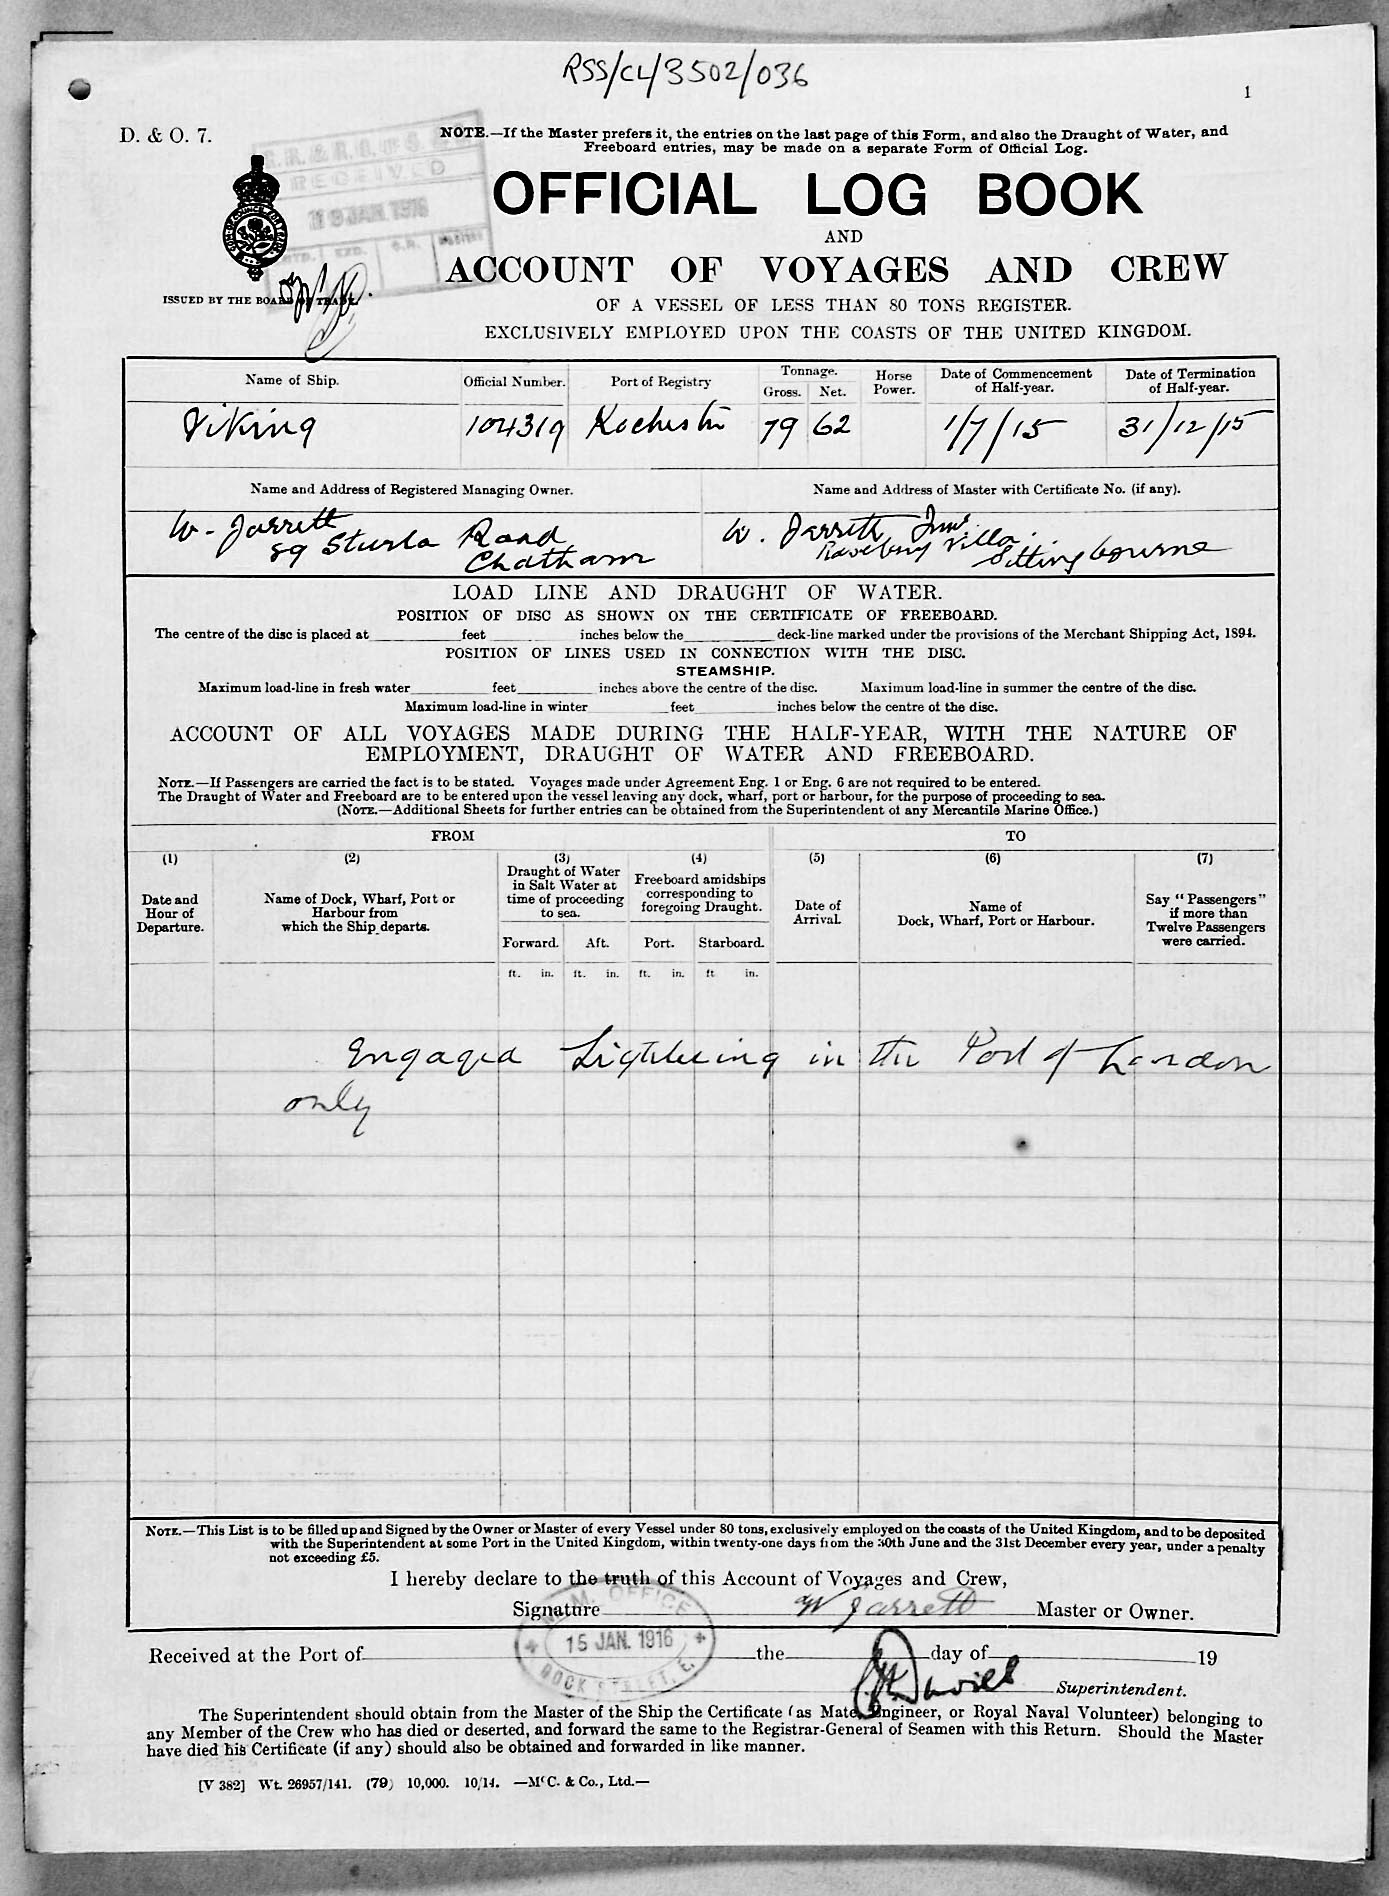 RSS/CL/3502/036
1
D. & O. 7.
RECEIVED
JAN. 1916
NOTE.—If the Master prefers it, the entries on the last page of this Form, and also the Draught of Water, and
Freeboard entries, may be made on a separate Form of Official Log.
OFFICIAL LOG BOOK
AND
ACCOUNT OF VOYAGES AND CREW
ISSUED BY THE BOARD OF TRADE.
OF A VESSEL OF LESS THAN 80 TONS REGISTER.
EXCLUSIVELY EMPLOYED UPON THE COASTS OF THE UNITED KINGDOM.
Name of Ship. Official Number. Port of Registry Tonnage. Gross. Net. Horse Power. Date of Commencement of Half-year. Date of Termination of Half-year.
Viking 104319 Rochester 79 62 1/7/15 31/12/15
Name and Address of Registered Managing Owner. Name and Address of Master with Certificate No. (if any).
W. Jarrett W. Jarrett Junr
89 Sturla Road Villa.
Chatham Sittingbourne
LOAD LINE AND DRAUGHT OF WATER.
POSITION OF DISC AS SHOWN ON THE CERTIFICATE OF FREEBOARD.
The centre of the disc is placed at feet inches below the deck-line marked under the provisions of the Merchant Shipping Act, 1894.
POSITION OF LINES USED IN CONNECTION WITH THE DISC.
STEAMSHIP.
Maximum load-line in fresh water feet inches above the centre of the disc. Maximum load-line in summer the centre of the disc.
Maximum load-line in winter feet inches below the centre of the disc.
ACCOUNT OF ALL VOYAGES MADE DURING THE HALF-YEAR, WITH THE NATURE OF
EMPLOYMENT, DRAUGHT OF WATER AND FREEBOARD.
NOTE.—If Passengers are carried the fact is to be stated. Voyages made under Agreement Eng. 1 or Eng. 6 are not required to be entered.
The Draught of Water and Freeboard are to be entered upon the vessel leaving any dock, wharf, port or harbour, for the purpose of proceeding to sea.
(NOTE.—Additional Sheets for further entries can be obtained from the Superintendent of any Mercantile Marine Office.)
FROM TO
(1) (2) (3) (4) (5) (6) (7)
Date and Hour of Departure.
Name of Dock, Wharf, Port or Harbour from which the Ship departs.
Draught of Water in Salt Water at time of proceeding to sea.
Freeboard amidships corresponding to foregoing Draught.
Date of Arrival.
Name of Dock, Wharf, Port or Harbour.
Say "Passengers" if more than Twelve Passengers were carried.
Forward. Aft. Port. Starboard.
ft. in. ft. in. ft. in. ft in.
Engaged Lightering in the Port of London
only
NOTE.—This List is to be filled up and Signed by the Owner or Master of every Vessel under 80 tons, exclusively employed on the coasts of the United Kingdom, and to be deposited
with the Superintendent at some Port in the United Kingdom, within twenty-one days from the 30th June and the 31st December every year, under a penalty
not exceeding £5.
I hereby declare to the truth of this Account of Voyages and Crew,
Signature W Jarrett Master or Owner.
M.M. OFFICE
15 JAN. 1916
DOCK STREET, E.
Received at the Port of the day of 19
Superintendent.
The Superintendent should obtain from the Master of the Ship the Certificate (as Mate, Engineer, or Royal Naval Volunteer) belonging to
any Member of the Crew who has died or deserted, and forward the same to the Registrar-General of Seamen with this Return. Should the Master
have died his Certificate (if any) should also be obtained and forwarded in like manner.
[V 382] Wt. 26957/141. (79) 10,000. 10/14. —McC. & Co., Ltd.—